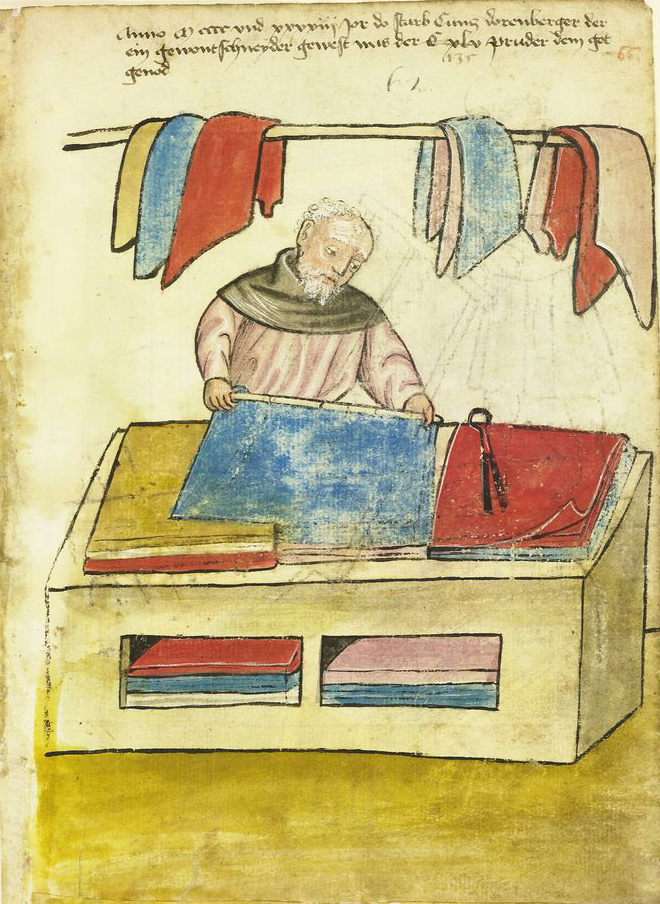 Anno M cccc und xxxxiii jor do starb Cuncz dorenberger der
ein gewontschneyder gewest was der C xlv pruder dem got
genod
135
66